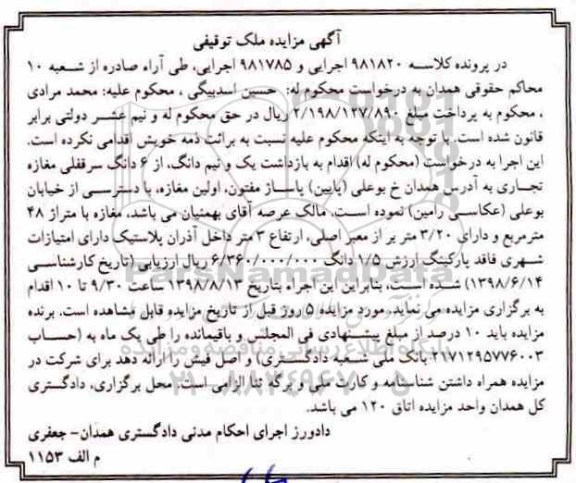 آگهی مزایده ملک توقیفی
در پرونده کلاسه ۹۸۱۸۲۰ اجرایی و ۹۸۱۷۸۵ اجرایی، طی آراء صادره از شعبه ۱۰
محاکم حقوقی همدان به درخواست محکوم له: حسین اسدبیگی ، محکوم علیه: محمد مرادی
، محکوم به پرداخت مبلغ ۲/۱۹۸/۱۲۷/۸۹۰ ریال در حق محکوم له و نیم عشر دولتی برابر
قانون شده است. با توجه به اینکه محکوم علیه نسبت به برائت ذمه خویش اقدامی نکرده است.
این اجرا به درخواست (محکوم له) اقدام به بازداشت یک و نیم دانگ، از ۶ دانگ سرقفلی مغازه
تجاری به آدرس همدان خ بوعلی (پایین) پاساژ مفتون، اولین مغازه، با دسترسی از خیابان
بوعلی (عکاسی رامین) نموده است. مالک عرصه آقای بهمنیان می باشد، مغازه با متراژ ۴۸
مترمربع و دارای ۳/۲۰ متر بر از معبر اصلی، ارتفاع ۳ متر داخل آذران پلاستیک دارای امتیازات
شهری فاقد پارکینگ ارزش ۱/۵ دانگ ۶/۳۶۰/۰۰۰/۰۰۰ ریال ارزیابی (تاریخ کارشناسی
۱۳۹۸/۶/۱۴) شده است، بنابراین این اجراء بتاریخ ۱۳۹۸/۸/۱۳ ساعت ۹/۳۰ تا ۱۰ اقدام
به برگزاری مزایده می نماید. مورد مزایده ۵ روز قبل از تاریخ مزایده قابل مشاهده است. برنده
مزایده باید ۱۰ درصد از مبلغ پیشنهادی فی المجلس و باقیمانده را طی یک ماه به (حساب
۲۱۷۱۲۹۵۷۷۶۰۰۳ بانک ملی شعبه دادگستری) و اصل فیش را ارائه دهد برای شرکت در
مزایده همراه داشتن شناسنامه و کارت ملی و برگه ثنا الزامی است. محل برگزاری، دادگستری
کل همدان واحد مزایده اتاق ۱۲۰ می باشد.
دادورز اجرای احکام مدنی دادگستری همدان- جعفری
م الف ۱۱۵۳